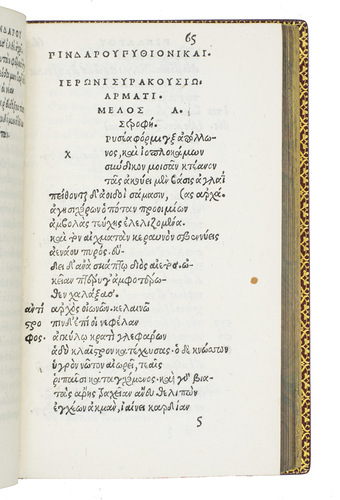 65
ΠΙΝΔΑΡΟΥ ΠΥΘΙΟΝΙΚΑΙ.
ΙΕΡΩΝΙ ΣΥΡΑΚΟΥΣΙΩ.
ΑΡΜΑΤΙ.
ΜΕΛΟΣ Α.
Στροφή.
Χ ρυσία φόρμιγξ ἀπόλλω
νος, καὶ ἰοπλοκάμων
σύνδικον μοισᾶν κτέανον
τᾶς ἀκούει μὲν βάσις ἀγλαΐ
πείθονται δ' ἀοιδοὶ σάμασιν, (ας ἀρχά.
ἁγησιχόρων ὁπόταν προοιμίων
ἀμβολὰς τεύχῃς ἐλελιζομένα.
καὶ τὸν αἰχματὰν κεραυνὸν σβεννύεις
ἀενάου πυρός. εὕ
δει δ' ἀνὰ σκάπτῳ διὸς αἰετός. ὠ
κεῖαν πτέρυγ' ἀμφοτέρω
θεν χαλάξας.
ἀντι ἀρχὸς οἰωνῶν. κελαινῶ
στρο πιν δ' ἐπί οἱ νεφέλαν
φος. ἀγκύλῳ κρατὶ γλεφάρων
ἁδὺ κλάϊστρον κατέχευας. ὁ δὲ κνώσσων
ὑγρὸν νῶτον αἰωρεῖ, τεαῖς
ῥιπαῖσι κατασχόμενος. καὶ γὰρ βια
τὰς ἄρης τραχεῖαν ἄνευθε λιπὼν
ἐγχέων ἀκμὰν, ἰαίνει καρδίαν
5